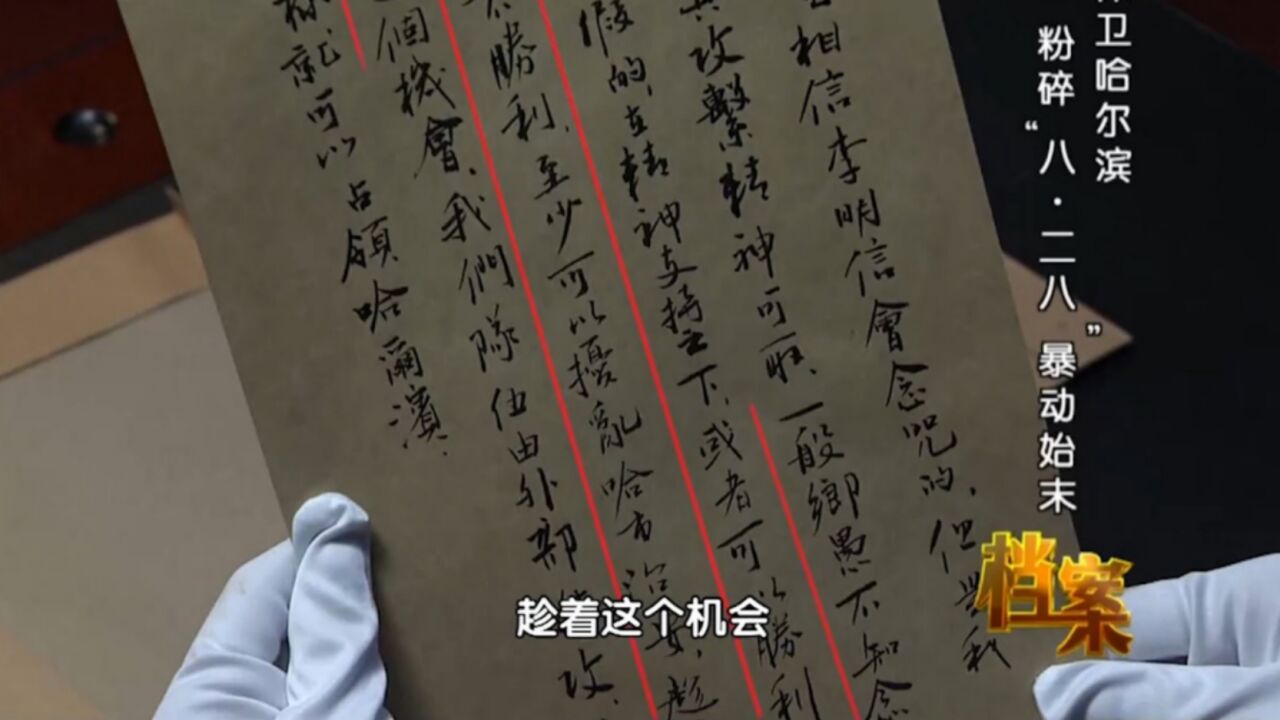 保卫哈尔滨
粉碎“八·二八”暴动始末
相信李明信會念咒的，但我
其攻擊精神可旺、一般鄉愚不知念
假的，在精神支持之下，或者可以勝利
不勝利，至少可以擾亂哈市治安，趁
這個機會，我們隊伍由外部進攻，
標就可以占領哈爾濱．
趁着这个机会
档案